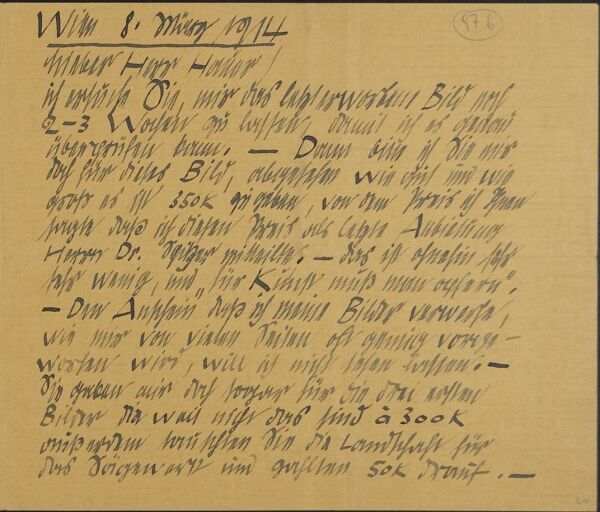 Wien 8. März 1914
97 b
Lieber Herr Hauer!
ich ersuche Sie, mir das letzterworbene Bild noch
2–3 Wochen zu lassen, damit ich es genau
überprüfen kann. — Dann bitte ich Sie mir
doch für dieses Bild, abgesehen wie gut und wie
groß es ist 350K zu geben, von dem Preis ich Ihnen
sagte daß ich diesen Preis als letzte Anbietung
Herrn Dr. Spitzer mitteilte. — das ist ohnehin sehr
sehr wenig, und „für Kunst muß man opfern".
— Den Anschein daß ich meine Bilder verwerfe,
wie mir von vielen Seiten oft genug vorge-
worfen wird, will ich nicht sehen lassen. —
Sie gaben mir doch sogar für die drei ersten
Bilder die weit nicht das sind à 300K
außerdem tauschten Sie die Landschaft für
das Sägewerk und zahlten 50K drauf. —